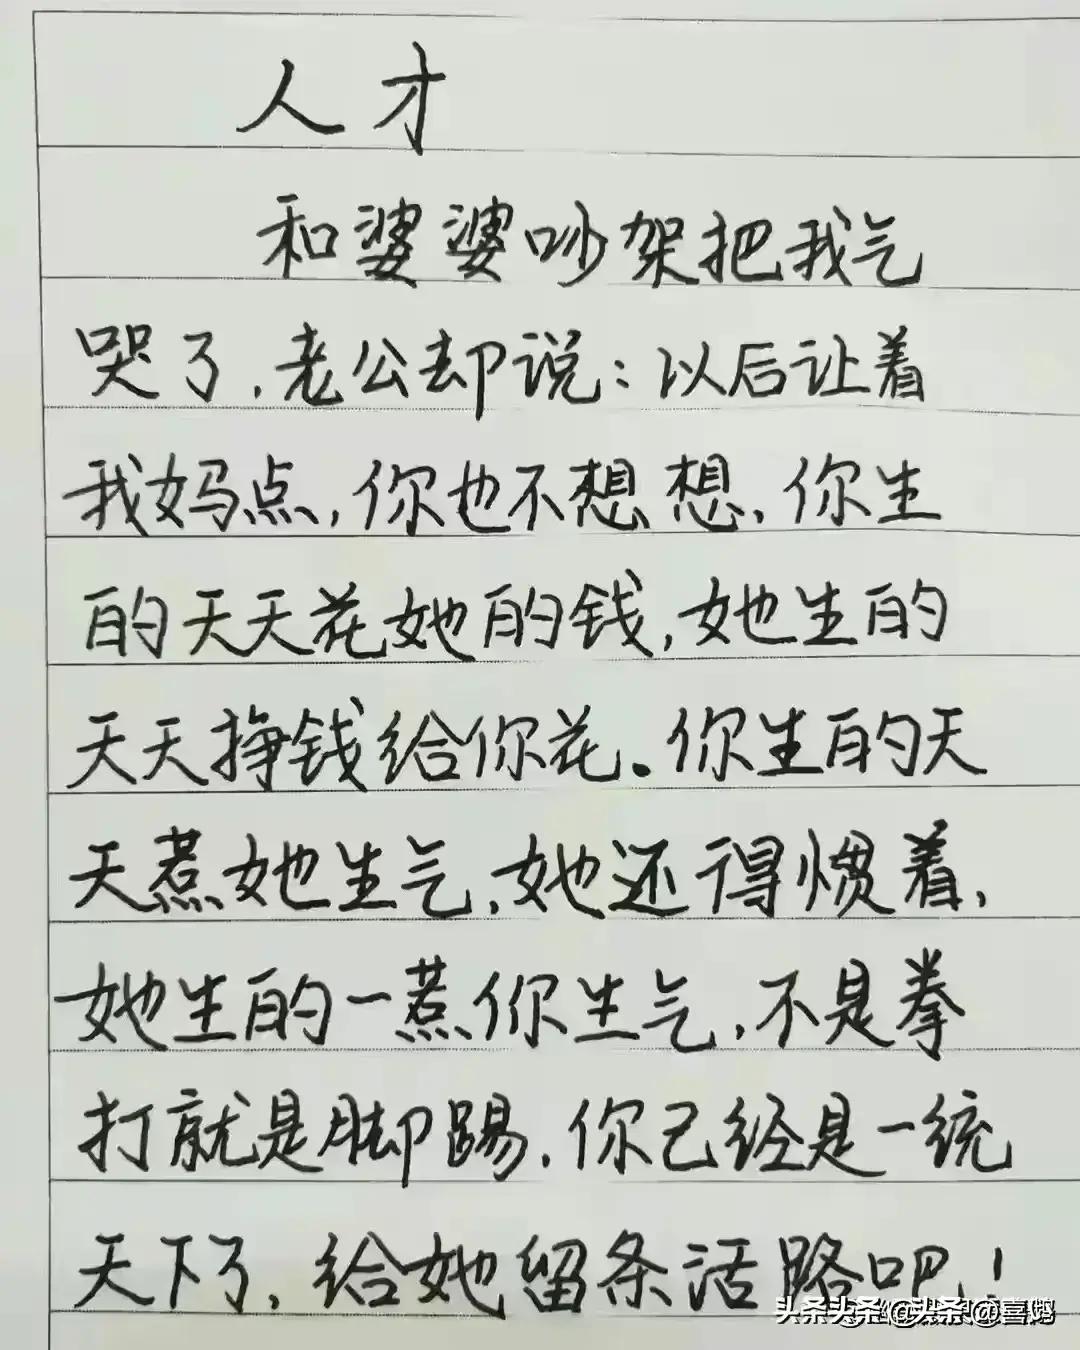 人才
和婆婆吵架把我气
哭了,老公却说:以后让着
我妈点,你也不想想,你生
的天天花她的钱,她生的
天天挣钱给你花。你生的天
天惹她生气,她还得惯着,
她生的一惹你生气,不是拳
打就是脚踢,你已经是一统
天下了,给她留条活路吧!
头条头条@头条@喜鹊